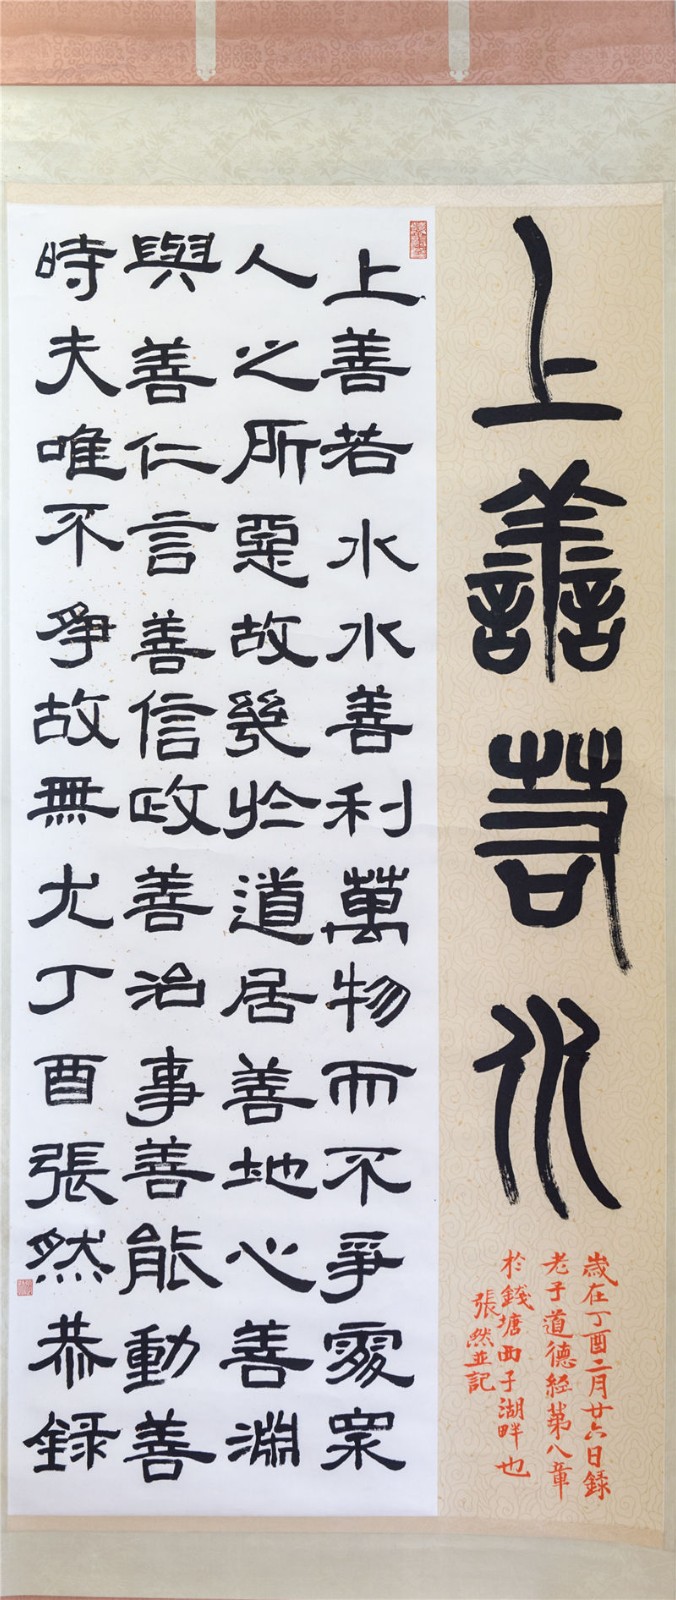 上善若水
歲在丁酉二月廿六日録
老子道德經第八章
於錢塘西子湖畔也
張然並記
上善若水水善利萬物而不爭處眾
人之所惡故幾於道居善地心善淵
與善仁言善信政善治事善能動善
時夫唯不爭故無尤丁酉張然恭録